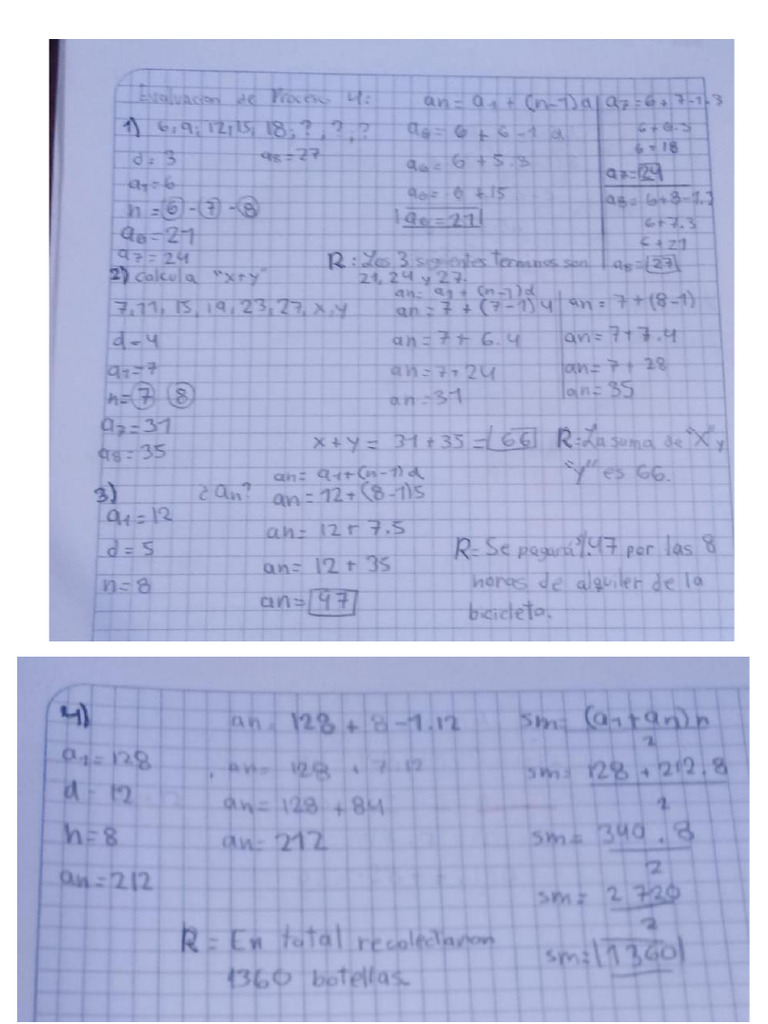 Evaluacion de Proceso 4:
an = a1 + (n-1)d
1) 6, 9, 12, 15, 18, ?, ?, ?
d = 3
a8 = 27
a1 = 6
n = 6 - 7 - 8
a6 = 21
a7 = 24
a6 = 6 + 6-1 d
a6 = 6 + 5.3
a6 = 6 + 15
a6 = 21
a7 = 6 + 7-1.3
6 + 6.3
6 + 18
a7 = 24
a8 = 6+8-1.3
6+7.3
6+21
a8 = 27
R: Los 3 siguientes terminos son
21, 24 y 27.
2) Calcula "x+y"
7, 11, 15, 19, 23, 27, x, y
d = 4
a1 = 7
n = 7 8
a7 = 31
a8 = 35
an = a1 + (n-1)d
an = 7 + (7-1)4
an = 7 + 6.4
an = 7 + 24
an = 31
an = 7+(8-1)
an = 7+7.4
an = 7+ 28
an = 35
x + y = 31 + 35 = 66
R: La suma de "X" y
"Y" es 66.
3)
¿an?
a1 = 12
d = 5
n = 8
an = a1+(n-1)d
an = 12+(8-1)5
an = 12+ 7.5
an = 12 + 35
an = 47
R= Se pagará 47 por las 8
horas de alquiler de la
bicicleta.
4)
a1 = 128
d = 12
n = 8
an = 212
an = 128 + 8-1.12
an = 128 + 7.12
an = 128 + 84
an = 212
sm = (a1 + an) n
2
sm = 128 + 212.8
2
sm = 340.8
2
sm = 2 720
2
sm = 1360
R = En total recolectaron
1360 botellas